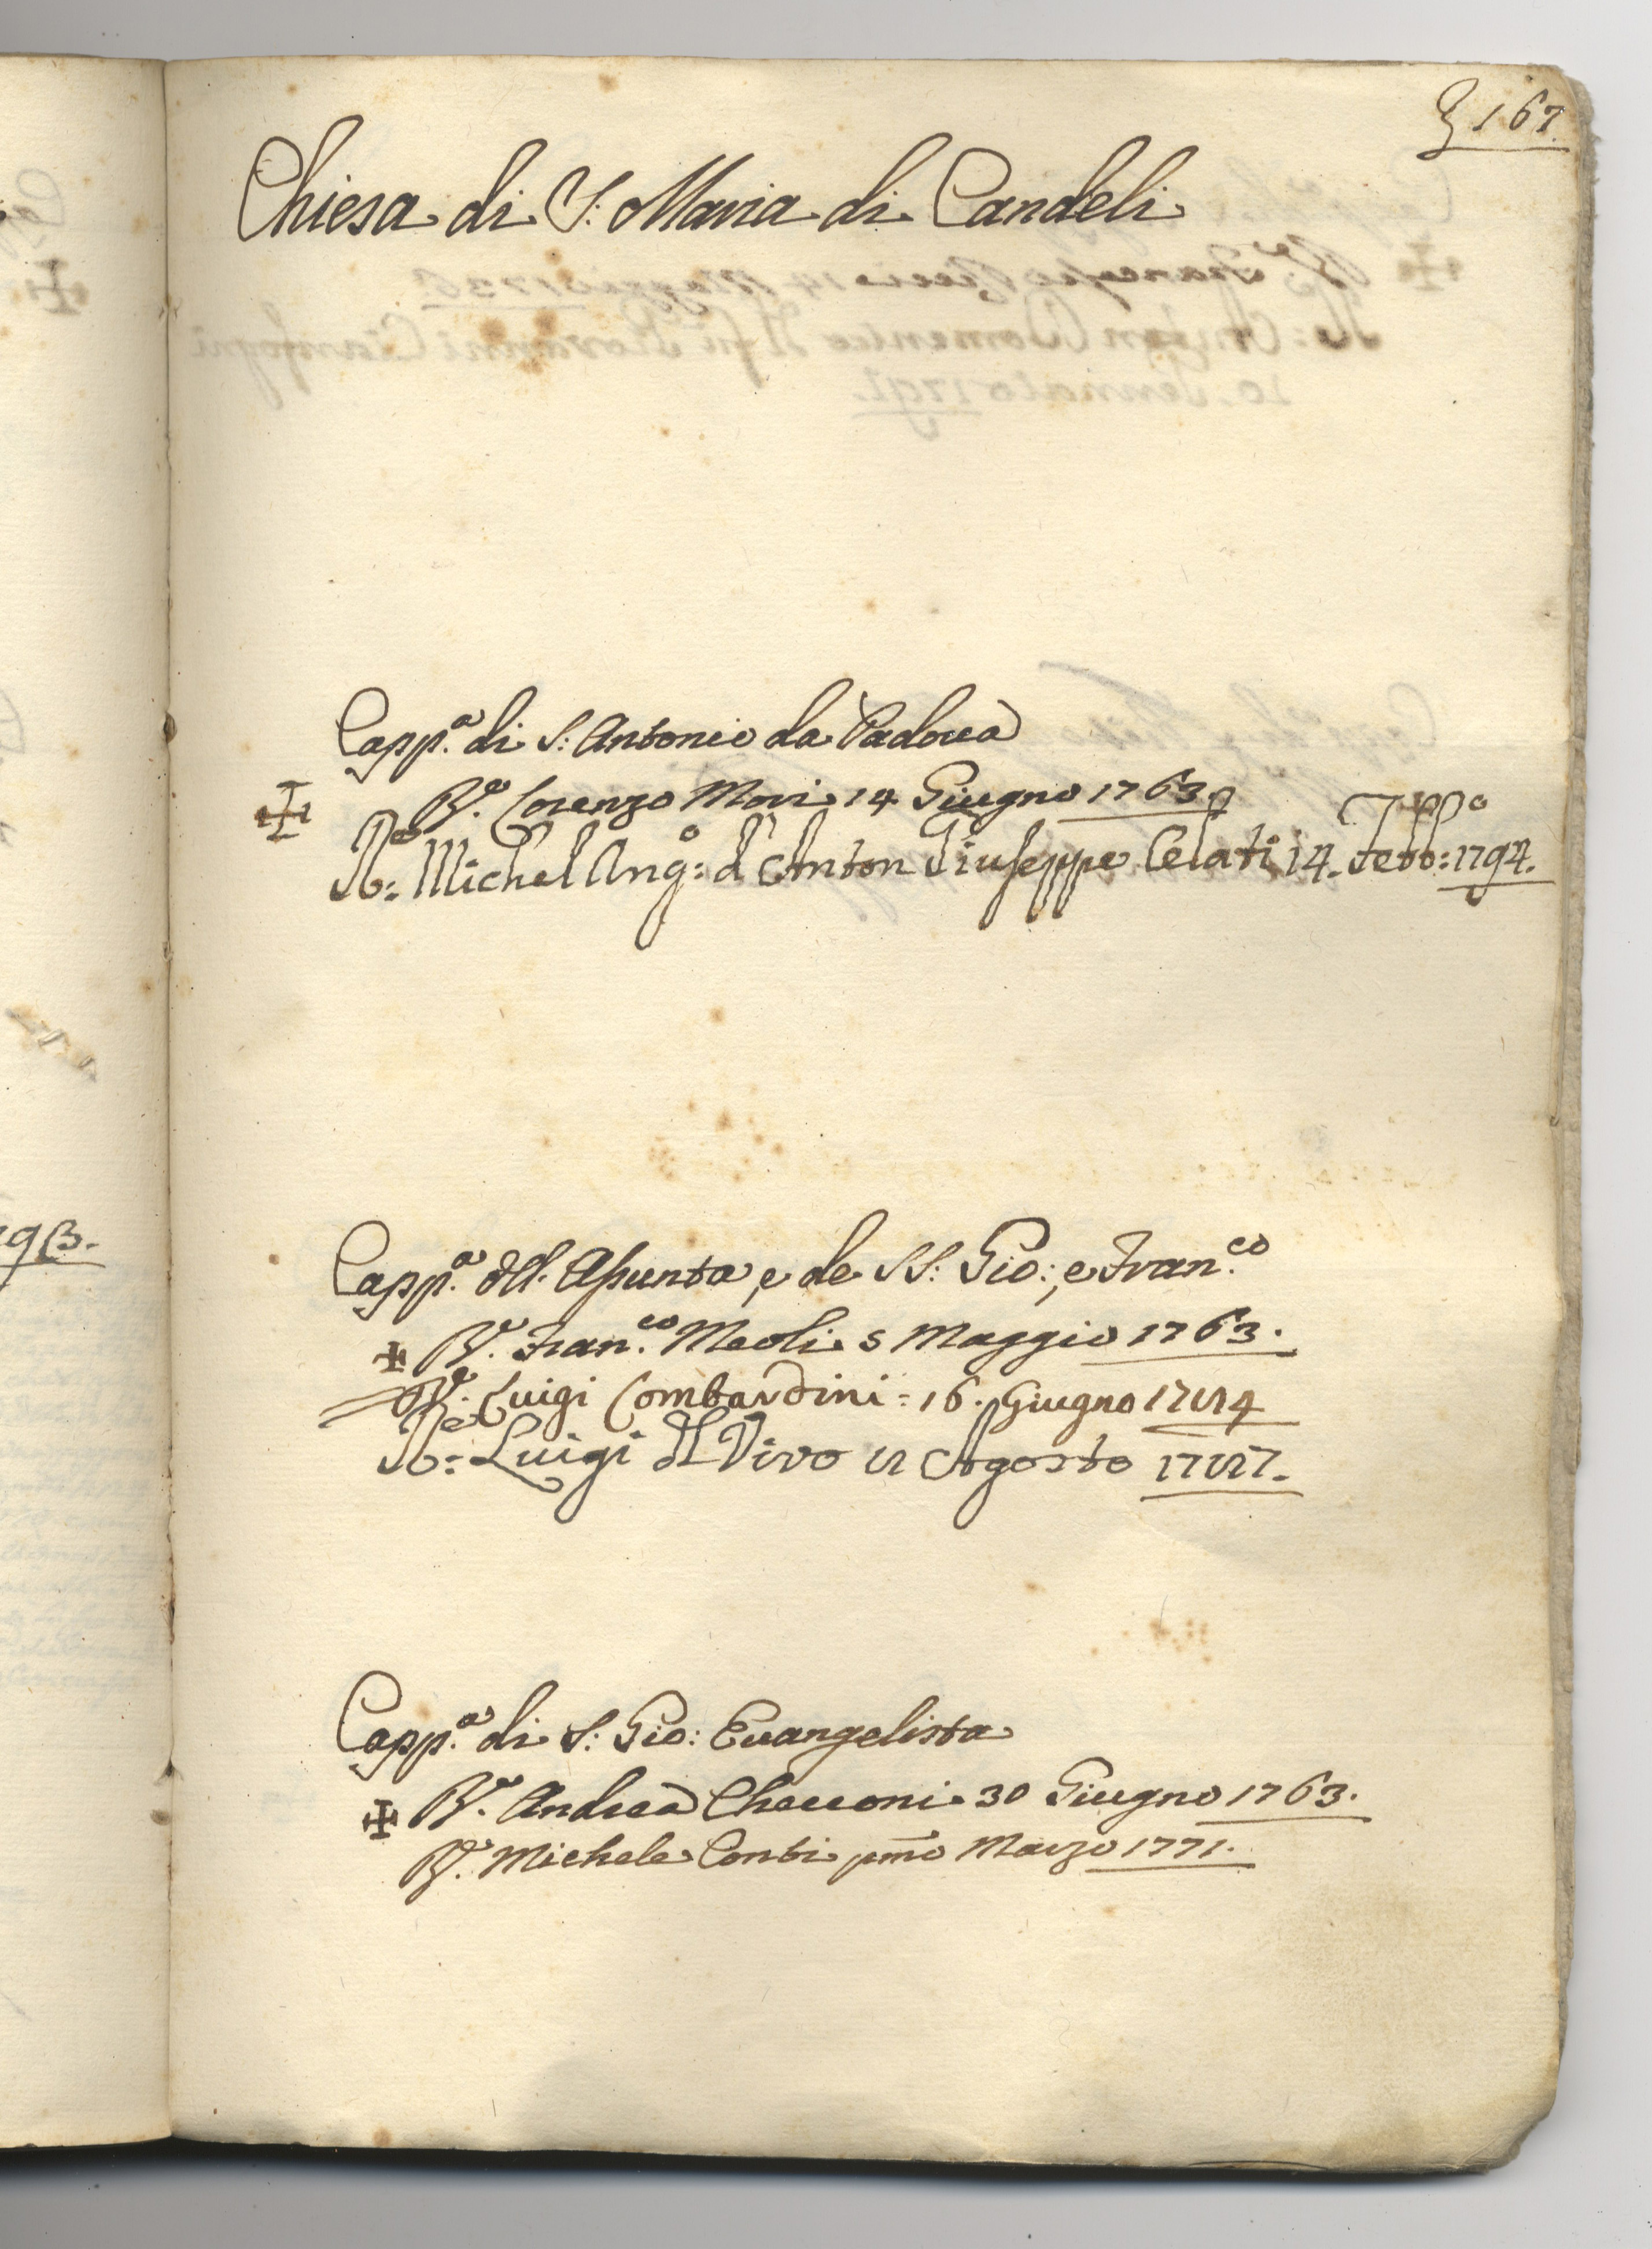 167.
Chiesa di S: Maria di Candeli
Capp.ª di S: Antonio da Padova
✠ R.e Lorenzo Mori 14 Giugno 1763.
R:e Michel Ang:o d'Anton Giuseppe Celati 14. Febb:o 1794.
Capp.ª dell' Assunta, e de SS: Gio:, e Fran.co
✠ R.e Fran.co Meoli 5 Maggio 1763.
R.e Luigi Lombardini = 16. Giugno 1784
R:e Luigi del Vivo 8 Agosto 1787.
Capp.ª di S: Gio: Evangelista
✠ R.e Andrea Checconi 30 Giugno 1763.
R.e Michele Conti pmo Marzo 1771.
93.